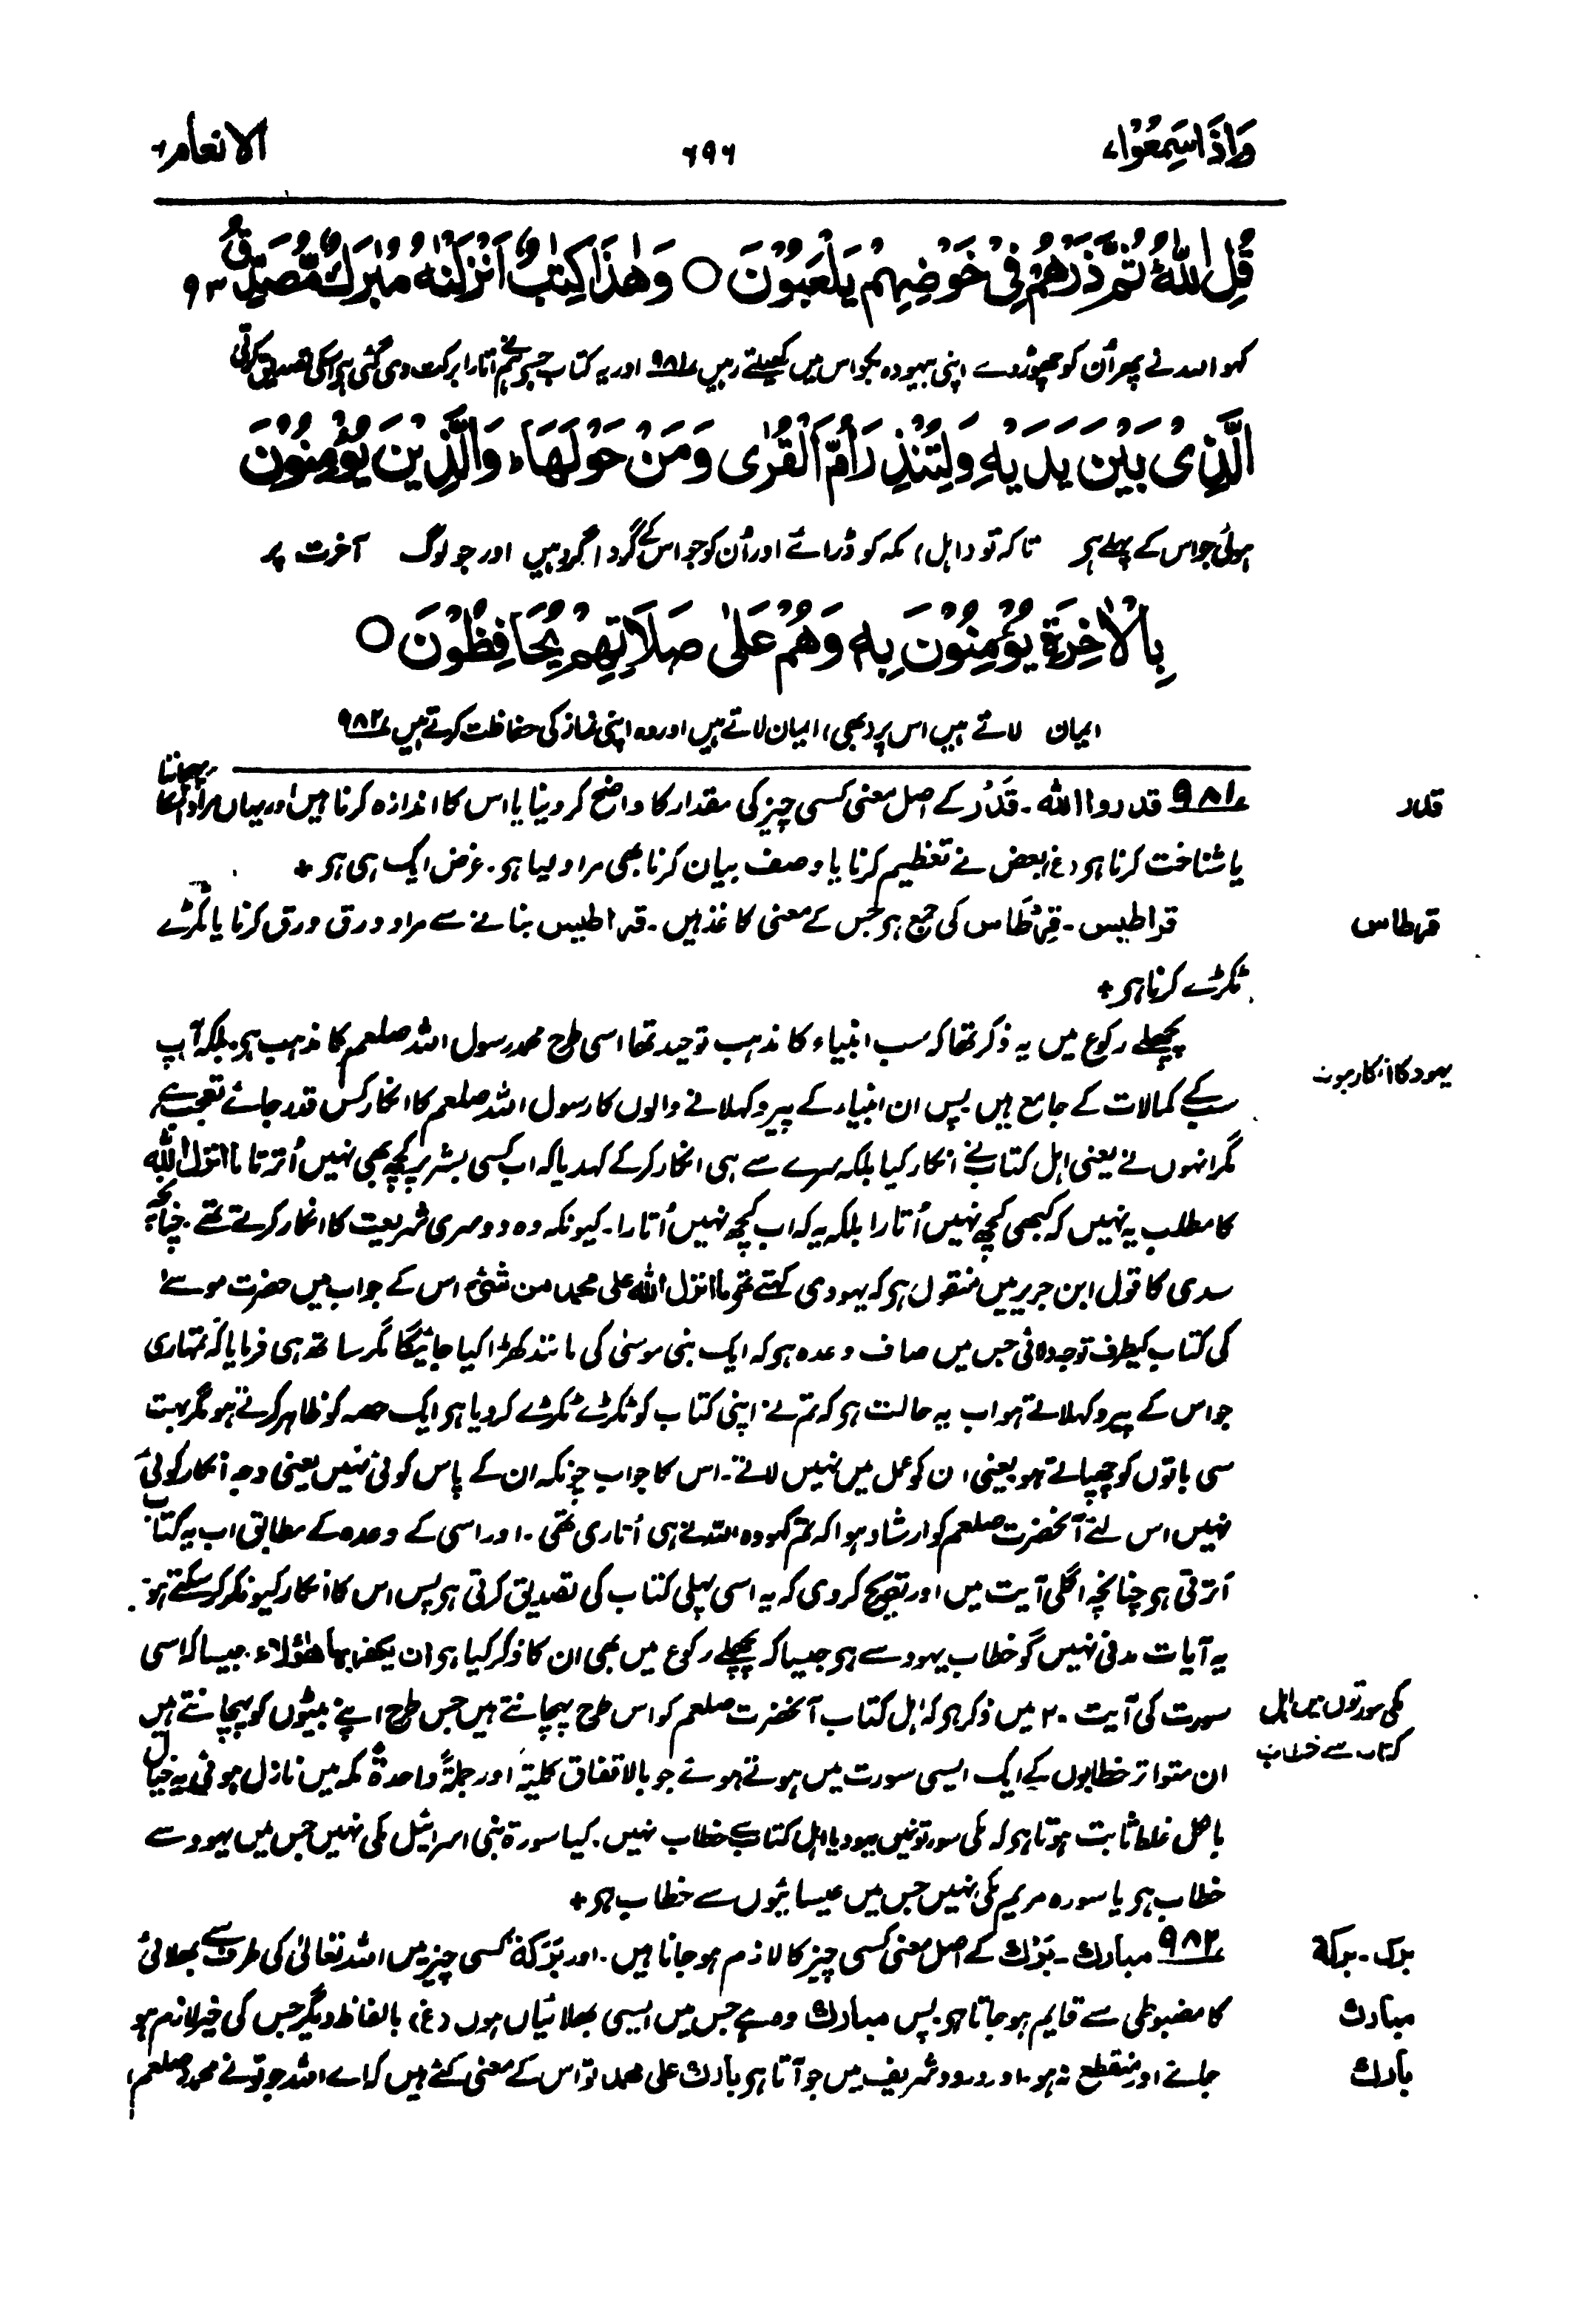 واذا سمعوا ٧
٦٩٦
الانعام ٦
قُلِ اللّٰهُ ثُمَّ ذَرْهُمْ فِیْ خَوْضِهِمْ یَلْعَبُوْنَ ○ وَهٰذَا كِتٰبٌ اَنْزَلْنٰهُ مُبٰرَكٌ مُّصَدِّقُ ٩٣
کہو اللہ نے پھر اُن کو چھوڑ دے اپنی بیہودہ بکواس میں کھیلتے رہیں ۹۸۱ اور یہ کتاب جسے ہم نے اتارا برکت دی گئی ہو اسکی تصدیق کرتی
الَّذِیْ بَیْنَ یَدَیْهِ وَلِتُنْذِرَ اُمَّ الْقُرٰی وَمَنْ حَوْلَهَا ؕ وَالَّذِیْنَ یُؤْمِنُوْنَ
ہوئی جو اس کے پہلے ہو تاکہ تو (اہل) مکہ کو ڈرائے اور اُن کو جو اس کے گردا گرد ہیں اور جو لوگ آخرت پر
بِالْاٰخِرَةِ یُؤْمِنُوْنَ بِهٖ وَهُمْ عَلٰی صَلَاتِهِمْ یُحَافِظُوْنَ ○
ایمان لاتے ہیں اس پر (بھی) ایمان لاتے ہیں اور وہ اپنی نماز کی حفاظت کرتے ہیں ۹۸۲
قدر
۹۸۱ قدروا اللہ ۔ قَدْر کے اصل معنی کسی چیز کی مقدار کا واضح کر دینا یا اس کا اندازہ کرنا ہیں اور یہاں مراد اسکا پہچاننا
یا شناخت کرنا ہو (غ) بعض نے تعظیم کرنا یا وصف بیان کرنا بھی مراد لیا ہو۔ غرض ایک ہی ہو +
قرطاس
قراطیس ۔ قِرْطَاس کی جمع ہو جس کے معنی کاغذ ہیں ۔ قراطیس بنانے سے مراد ورق ورق کرنا یا ٹکڑے
ٹکڑے کرنا ہو +
پچھلے رکوع میں یہ ذکر تھا کہ سب انبیاء کا مذہب توحید تھا اسی طرح محمد رسول اللہ صلعم کا مذہب ہو بلکہ آپ
یہود کا انکار نبوت
سب کے کمالات کے جامع ہیں پس ان انبیاء کے پیرو کہلانے والوں کا رسول اللہ صلعم کا انکار کس قدر جائے تعجب ہے
مگر انہوں نے یعنی اہل کتاب نے انکار کیا بلکہ سرے سے ہی انکار کرکے کہدیا کہ اب کسی بشر پر کچھ بھی نہیں اُترتا ما انزل اللہ
کا مطلب یہ نہیں کہ کبھی کچھ نہیں اُتارا بلکہ یہ کہ اب کچھ نہیں اُتارا ۔ کیونکہ وہ دوسری شریعت کا انکار کرتے تھے ۔ چنانچہ
سدی کا قول ابن جریر میں منقول ہو کہ یہودی کہتے تھے ما انزل اللہ علی محمد من شئ اس کے جواب میں حضرت موسٰے
کی کتاب کیطرف توجہ دلائی جس میں صاف وعدہ ہو کہ ایک نبی موسیٰ کی مانند کھڑا کیا جائیگا مگر ساتھ ہی فرمایا کہ تمہاری
جو اس کے پیرو کہلاتے ہو اب یہ حالت ہو کہ تم نے اپنی کتاب کو ٹکڑے ٹکڑے کر دیا ہو ایک حصہ کو ظاہر کرتے ہو مگر بہت
سی باتوں کو چھپاتے ہو یعنی ان کو عمل میں نہیں لاتے ۔ اس کا جواب چونکہ ان کے پاس کوئی نہیں یعنی وجہ انکار کوئی
نہیں اس لئے آنحضرت صلعم کو ارشاد ہوا کہ تم کہو وہ اللہ نے ہی اُتاری تھی ۔ اور اسی کے وعدہ کے مطابق اب یہ کتاب
اُترتی ہو چنانچہ اگلی آیت میں اور تصریح کر دی کہ یہ اسی پہلی کتاب کی تصدیق کرتی ہو پس اس کا انکار کیونکر کر سکتے ہو۔
یہ آیات مدنی نہیں گو خطاب یہود سے ہو جیسا کہ پچھلے رکوع میں بھی ان کا ذکر کیا ہو ان یکفر بہا ھٰؤلاء ۔ جیسا کہ اسی
مکی سورتوں میں اہل
کتاب سے خطاب
سورت کی آیت ۲۰ میں ذکر ہو کہ اہل کتاب آنحضرت صلعم کو اس طرح پہچانتے ہیں جس طرح اپنے بیٹوں کو پہچانتے ہیں
ان متواتر خطابوں کے ایک ایسی سورت میں ہوتے ہوئے جو بالاتفاق کلیتہً اور جملۃً واحدۃً مکہ میں نازل ہوئی یہ خیال
باطل غلط ثابت ہوتا ہو کہ مکی سورتونمیں یہود یا اہل کتاب سے خطاب نہیں ۔ کیا سورۃ بنی اسرائیل مکی نہیں جس میں یہود سے
خطاب ہو یا سورہ مریم مکی نہیں جس میں عیسائیوں سے خطاب ہو +
برک ۔ برکة
۹۸۲ مبارك ۔ بَرْك کے اصل معنی کسی چیز کا لازم ہو جانا ہیں ۔ اور بَرَكَة کسی چیز میں اللہ تعالیٰ کی طرف سے بھلائی
مبارك
کا مضبوطی سے قایم ہو جاتا ہو پس مبارك وہ ہے جس میں ایسی بھلائیاں ہوں (غ) بالفاظ دیگر جس کی خیر لازم ہو
بارك
جائے اور منقطع نہ ہو ۔ اور درود شریف میں جو آتا ہو بارك علی محمد تو اس کے معنی کئے ہیں کہ اے اللہ جو تو نے محمد صلعم